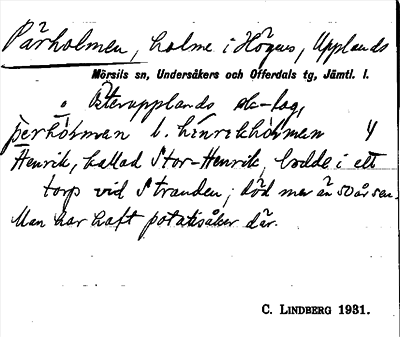 Pärholmen, holme i Högns, Upplands
Mörsils sn, Undersåkers och Offerdals tg, Jämtl. l.
o. Österupplands sk-lag,
pærhòɩ̵man l. hinrikhòɩ̵man
Henrik, kallad Stor-Henrik, bodde i ett
torp vid Stranden; död mer än 50 år sen.
Man har haft potatisåker där.
C. LINDBERG 1931.